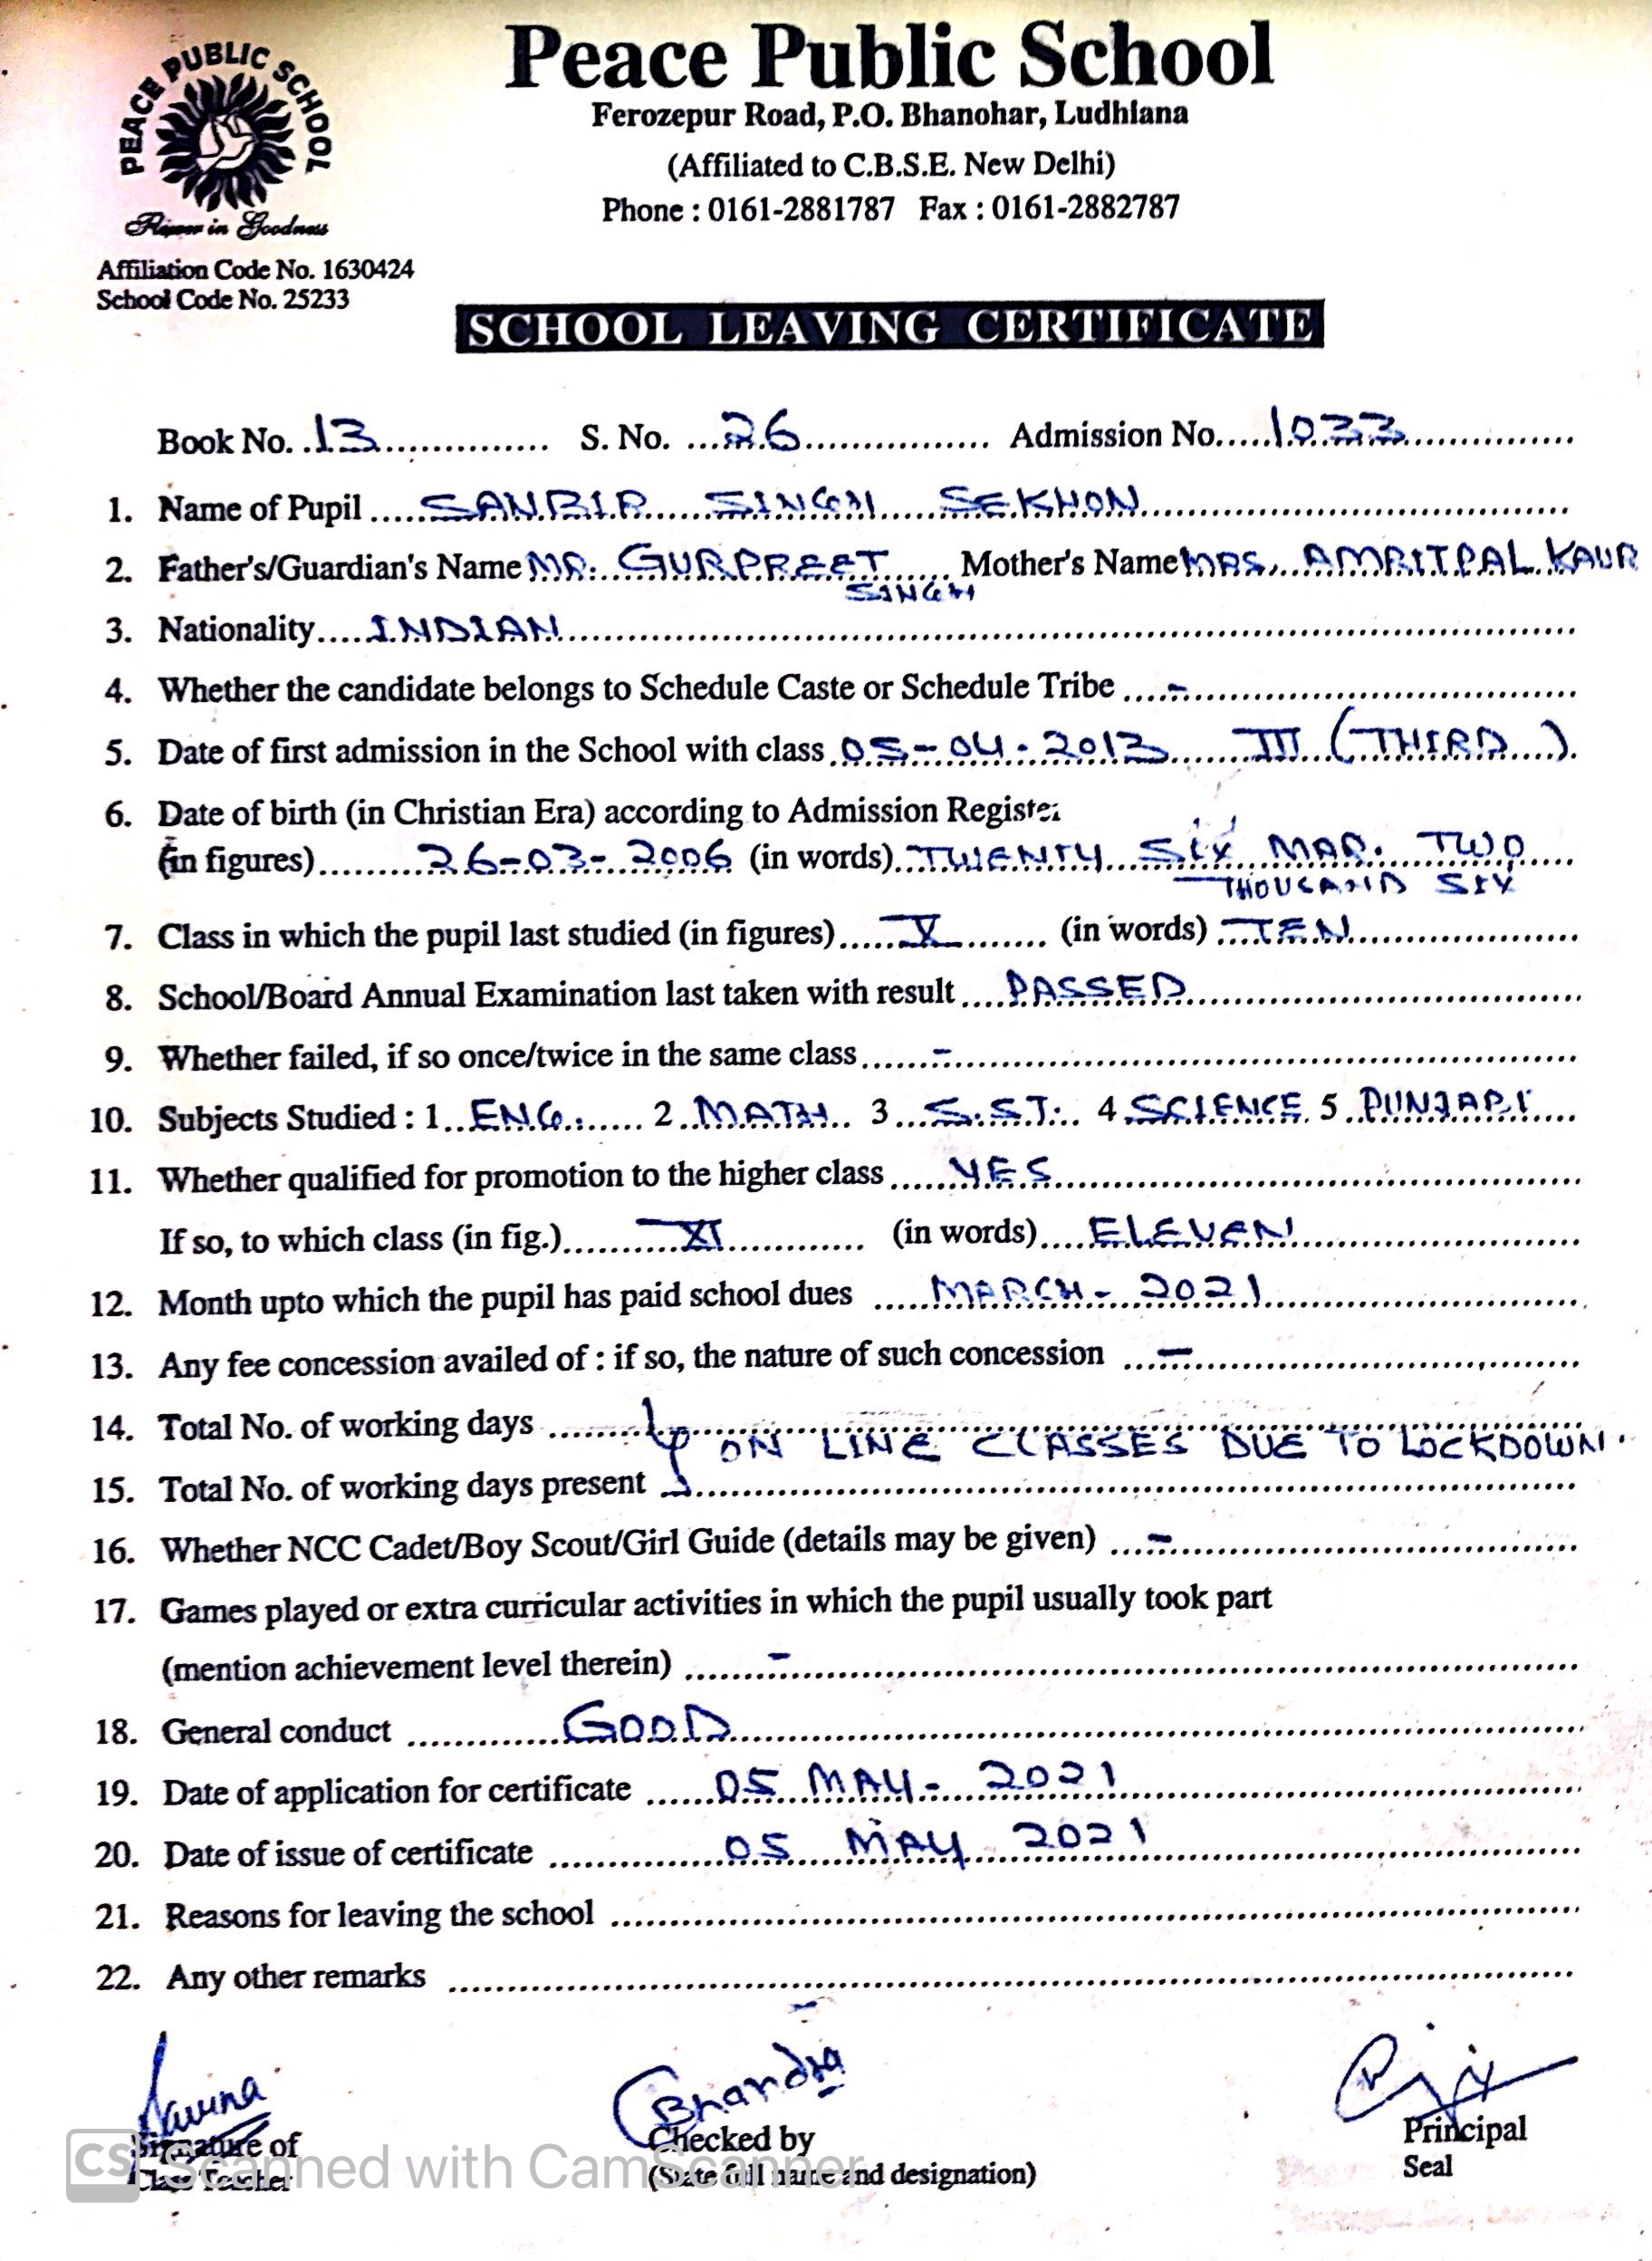 PEACE PUBLIC SCHOOL
Peace Public School
Ferozepur Road, P.O. Bhanohar, Ludhiana
(Affiliated to C.B.S.E. New Delhi)
Phone : 0161-2881787 Fax : 0161-2882787
in Goodness
Affiliation Code No. 1630424
School Code No. 25233
SCHOOL LEAVING CERTIFICATE
Book No. 13 S. No. 26 Admission No. 1033
1. Name of Pupil SANBIR SINGH SEKHON
2. Father's/Guardian's Name MR. GURPREET Mother's Name MRS. AMRITPAL KAUR
SINGH
3. Nationality INDIAN
4. Whether the candidate belongs to Schedule Caste or Schedule Tribe -
5. Date of first admission in the School with class 05-04-2013 III (THIRD)
6. Date of birth (in Christian Era) according to Admission Register
(in figures) 26-03-2006 (in words) TWENTY SIX MAR. TWO
THOUSAND SIX
7. Class in which the pupil last studied (in figures) X (in words) TEN
8. School/Board Annual Examination last taken with result PASSED
9. Whether failed, if so once/twice in the same class -
10. Subjects Studied : 1 ENG. 2 MATH 3 S.ST. 4 SCIENCE 5 PUNJABI
11. Whether qualified for promotion to the higher class YES
If so, to which class (in fig.) XI (in words) ELEVEN
12. Month upto which the pupil has paid school dues MARCH - 2021
13. Any fee concession availed of : if so, the nature of such concession -
14. Total No. of working days
ON LINE CLASSES DUE TO LOCKDOWN.
15. Total No. of working days present
16. Whether NCC Cadet/Boy Scout/Girl Guide (details may be given) -
17. Games played or extra curricular activities in which the pupil usually took part
(mention achievement level therein) -
18. General conduct GOOD
19. Date of application for certificate 05 MAY - 2021
20. Date of issue of certificate 05 MAY 2021
21. Reasons for leaving the school
22. Any other remarks
-
Bhandra
Signature of Checked by Principal
Class Teacher (State full name and designation) Seal
CS Scanned with CamScanner